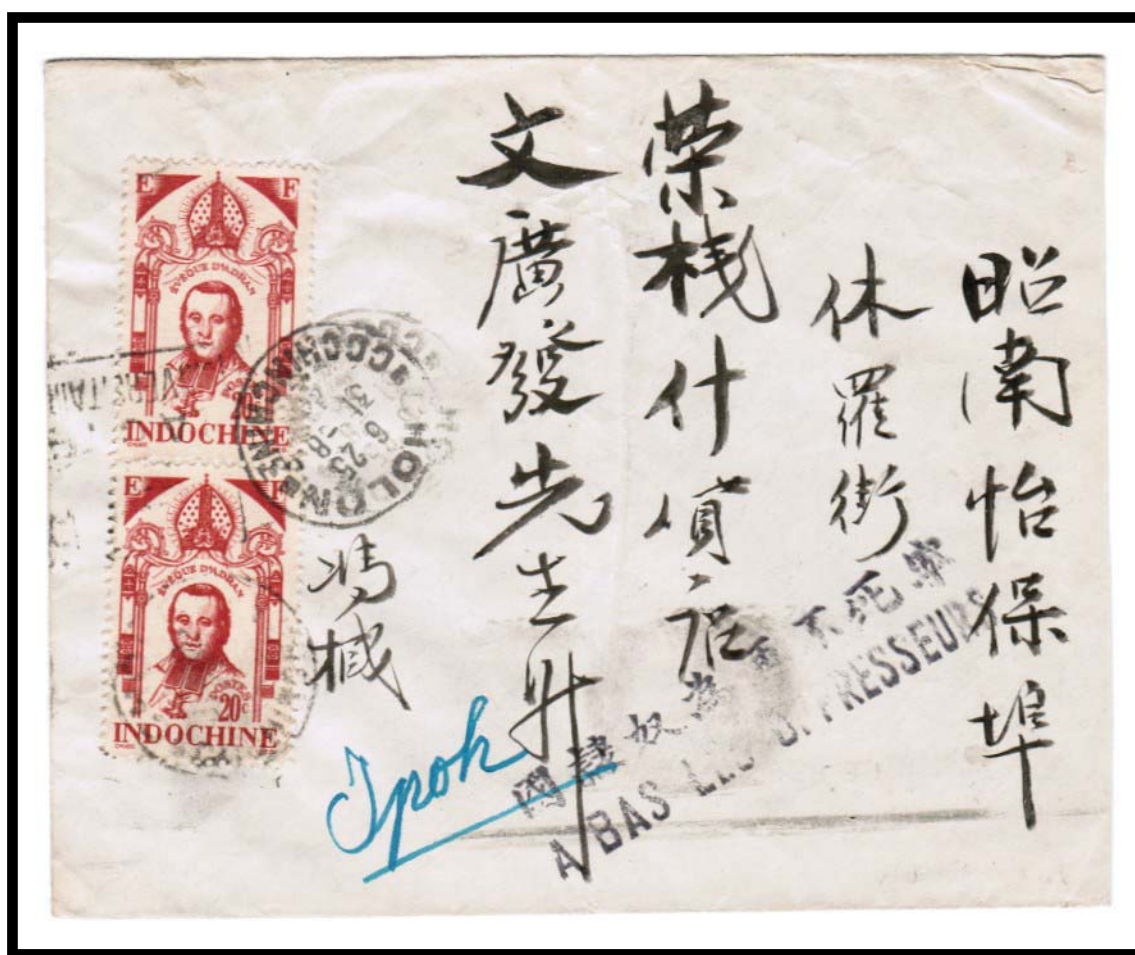 昭南怡保埠
休羅街
荣栈什貨店
文廣發先生升
馮
Ipoh
A BAS LES OPPRESSEURS
E F
EVEQUE D'ADRAN
INDOCHINE
E F
EVEQUE D'ADRAN
POSTES
20c
INDOCHINE
CHOLON
COCHINCHINE
6 25
31 -8